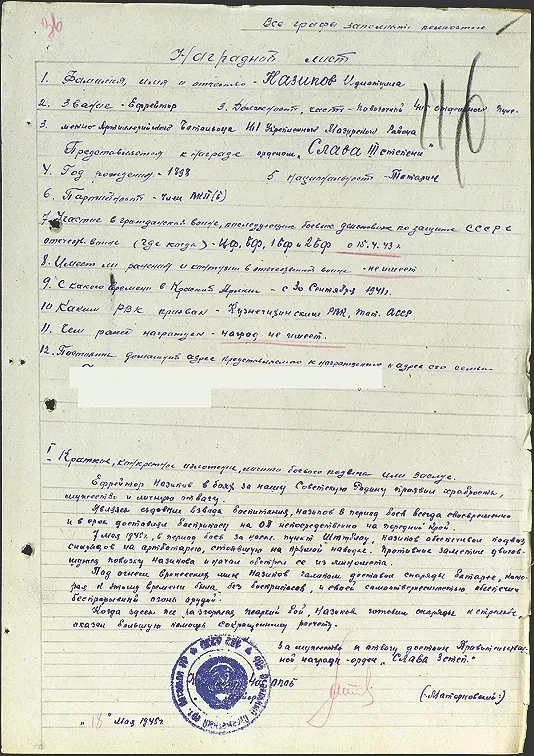 Все графы заполнять полностью
Наградной лист
1. Фамилия, имя и отчество - Назипов
2. Звание - Ефрейтор 3. Должность, часть -
Артиллерийского Батальона 161 Укрепленного Мазурского Района
Представляется к награде орденом "Слава III степени"
116
4. Год рождения - 1898 5 национальность - Татарин
6. Партийность - член ВКП(б)
7. Участие в гражданской войне, последующие боевые действия по защите СССР в
отечеств. войне (где когда) -
8. Имеет ли ранения и контузии в отечественной войне - не имеет
9. С какого времени в Красной Армии - с 30 Сентября 1941 г.
10 Каким РВК призван - Кузнечихинским РВК, Тат. АССР
11. Чем ранее награжден - наград не имеет.
12. Постоянный домашний адрес представляемого к награждению и адрес его семьи
I Краткое, конкретное изложение, личного боевого подвига или заслуг.
Ефрейтор Назипов в боях за нашу Советскую Родину проявил храбрость,
мужество и личную отвагу.
Являясь ездовым взвода боепитания, Назипов в период боев всегда своевременно
и в срок доставлял боеприпасы на ОП непосредственно на передний край.
7 мая 1945 г. в период боя за насел. пункт Назипов обеспечивал подвоз
снарядов на артбатарею, стоявшую на прямой наводке. Противник заметив движов-
шуюся повозку Назипова и начал обстрел ее из миномета.
Под огнем вражеских мин Назипов галопом доставил снаряды батарее, кото-
рая к этому времени была без боеприпасов, и своей самоотверженностью обеспечил
беспрерывный огонь орудий.
Когда здесь же разгорелся жаркий бой Назипов готовил снаряды к стрельбе
оказал большую помощь сокращенному расчету.
За мужество и отвагу достоин Правительствен-
ной награды - орден "Слава 3 степ."
"18" Мая 1945 г.